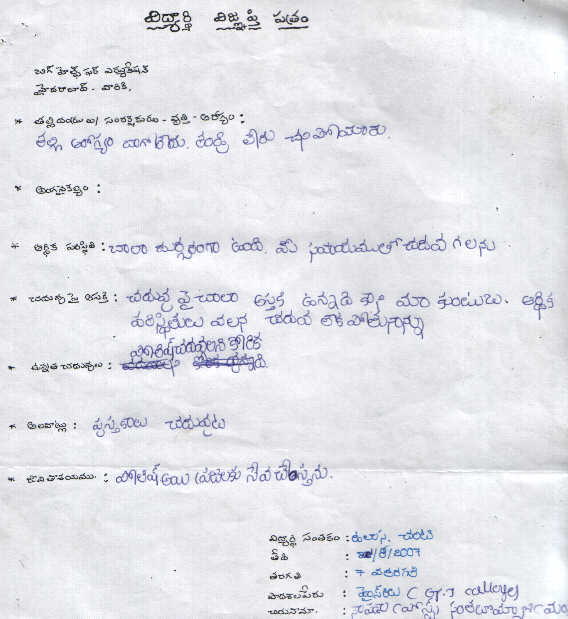 విద్యార్థి విజ్ఞప్తి పత్రం
బిగ్ హెల్ప్ ఫర్ ఎడ్యుకేషన్
హైదరాబాద్ - వారికి,
* తల్లిదండ్రులు / సంరక్షకురు - వృత్తి - ఆరోగ్యం : తల్లి ఆరోగ్యం బాగాలేదు. తండ్రి వీరు చనిపోయారు.
* అంగవైకల్యం :
* ఆర్థిక పరిస్థితి : చాలా దుర్భరంగా ఉంది. మీ సహాయముతో చదువ గలను
* చదువు పై ఆసక్తి : చదువు పై చాలా ఆస్తక ఉన్నది కాని మా కుంటుబ. ఆర్థిక
పరిస్థితులు వలన చదువ లేక పోతున్నాను
పోలీష్ చదవాలని కోరిక
* ఉన్నత చదువులు :
* అలవాట్లు : పుస్తకాలు చదువుట
* జీవితాశయము : పోలీష్ అయి ప్రజలకు సేవ చేస్తాను.
విద్యార్థి సంతకం :
తేది : /8/2007
తరగతి : 7 వతరగతి
పాఠశాలపేరు : హైస్కూలు (
చిరునామా. :